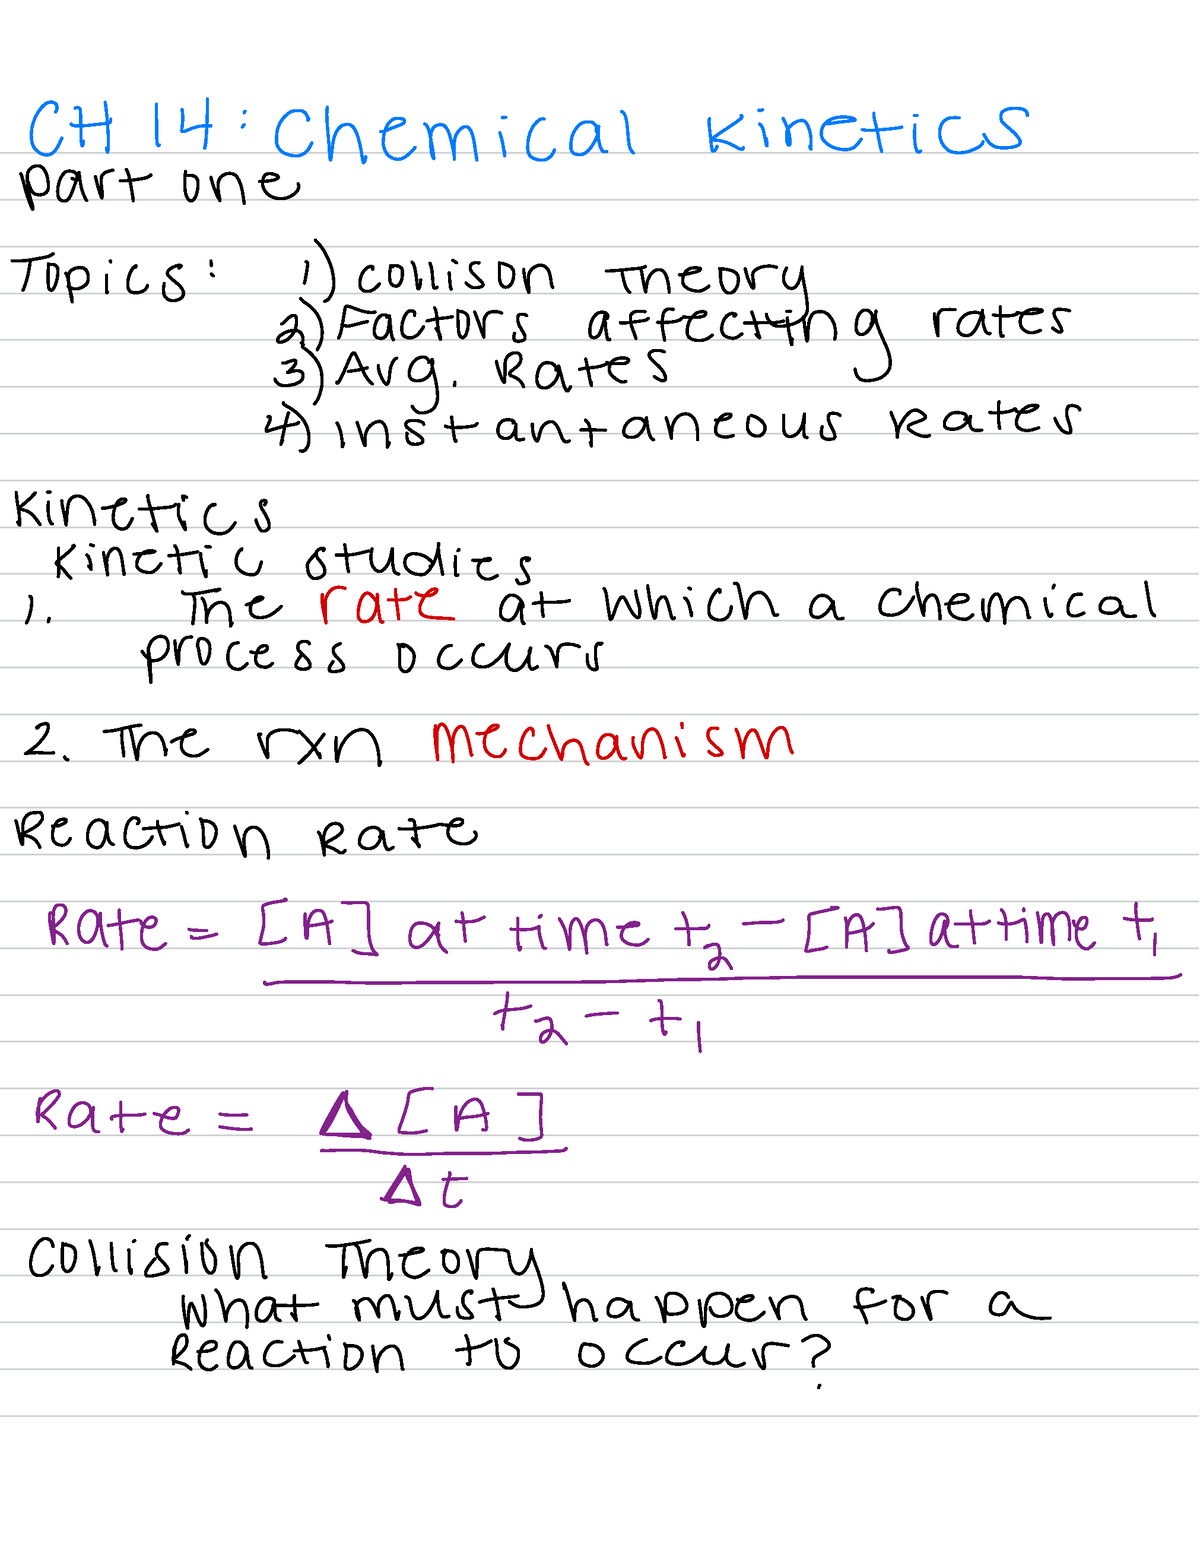 CH 14: Chemical Kinetics
Part one
Topics: 1) Collison Theory
2) Factors affecting rates
3) Avg. Rates
4) instantaneous Rates
Kinetics
Kinetic studies
1. The rate at which a chemical
process occurs
2. The rxn mechanism
Reaction Rate
Rate = [A] at time t₂ - [A] at time t₁
t₂ - t₁
Rate = Δ[A]
Δt
Collision Theory
What must happen for a
Reaction to occur?